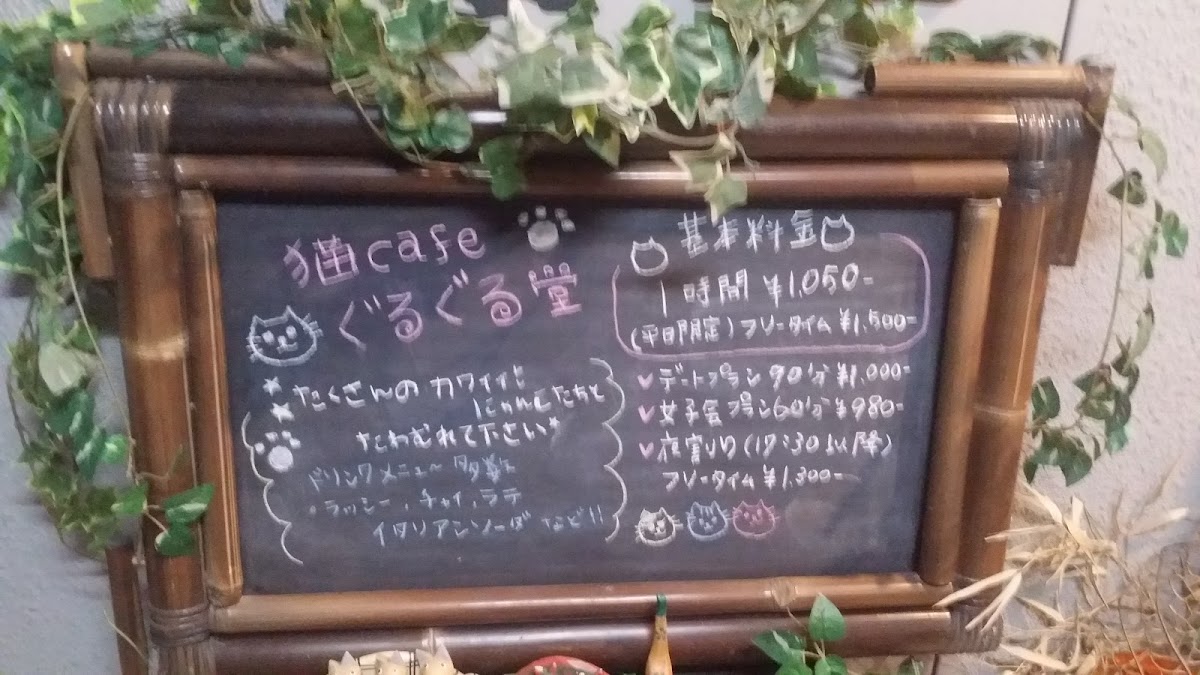 猫cafe
ぐるぐる堂
たくさんの カワイイ
にゃんこたちと
たわむれて下さい
ドリンクメニュー 多数に
・ラッシー、チャイ、ラテ
イタリアンソーダ など!!
基本料金
1時間 ¥1,050-
(平日限定) フリータイム ¥1,500-
♥ デートプラン 90分 ¥1,000-
♥ 女子会プラン 60分 ¥980-
♥ 夜割り (17:30以降)
フリータイム ¥1,300-